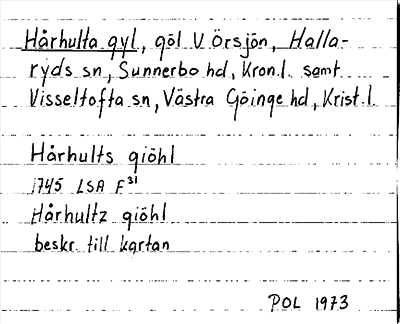 Hårhulta gyl, göl V Örsjön, Halla-
ryds sn, Sunnerbo hd, Kron.l. samt
Visseltofta sn, Västra Göinge hd, Krist.l.
Hårhults giöhl
1745 LSA F31
Hårhultz giöhl
beskr. till kartan
POL 1973